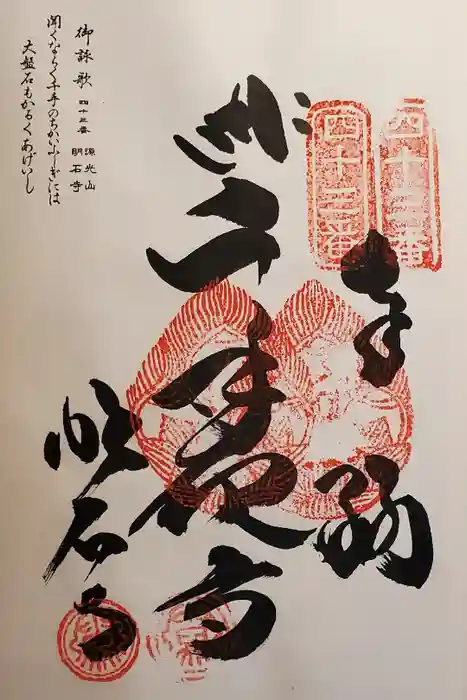 御詠歌 四十三番 源光山 明石寺
聞くならく千手のちかいふしぎには
大盤石もかるくあげいし
四十三番
四十三番
奉納
千手
明石寺